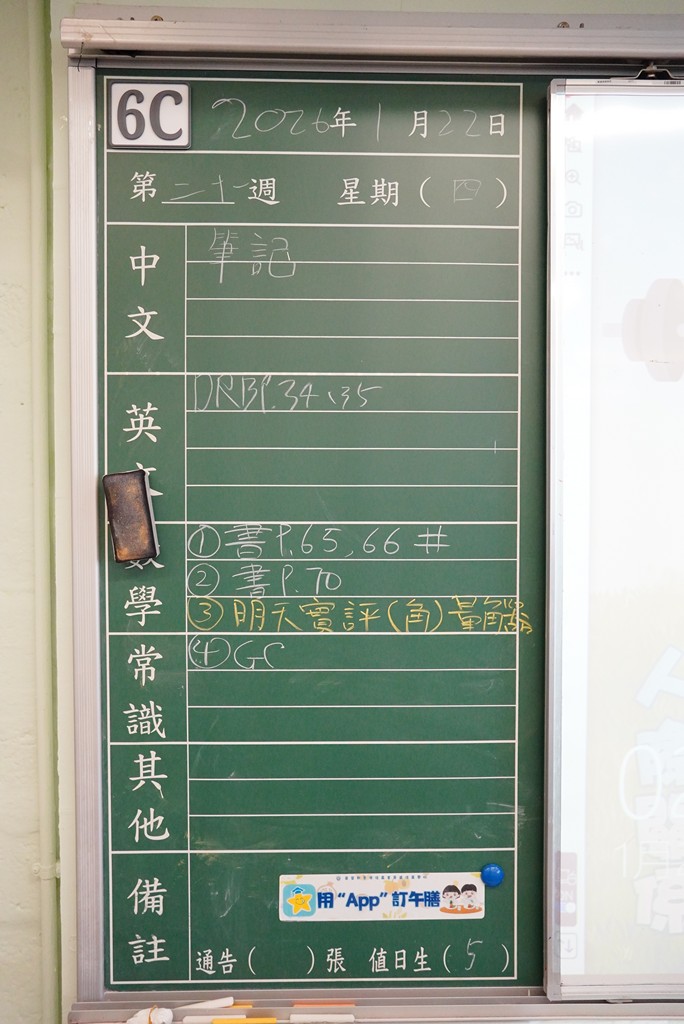 6C 2026年1月22日
第二十一週 星期(四)
中文 筆記
英文 DRBP.34、35
數學 ①書P.65,66 #
②書P.70
③明天實評(角)量角器
常識 ④GC
其他
備註
用“App”訂午膳
通告( )張 值日生(5)